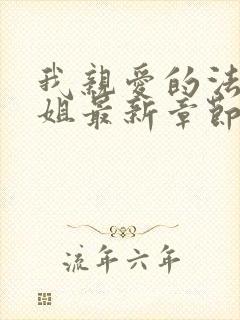 我親愛的法
姐最新章節
流年六年